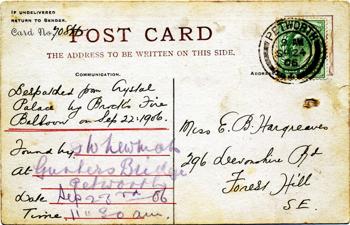 IF UNDELIVERED
RETURN TO SENDER.
Card No.
POST CARD
THE ADDRESS TO BE WRITTEN ON THIS SIDE.
COMMUNICATION.
PETWORTH
SP
06
Despatched from Crystal
Palace by Brocks Fire
Balloon on Sep 22: 1906.
Found by
At Gunters Bridge
Petworth
Date Sep 23 06
Time, 11 30 a.m.
Miss E. B. Hargreaves
296 Devonshire Rd
Forest Hill
S.E.